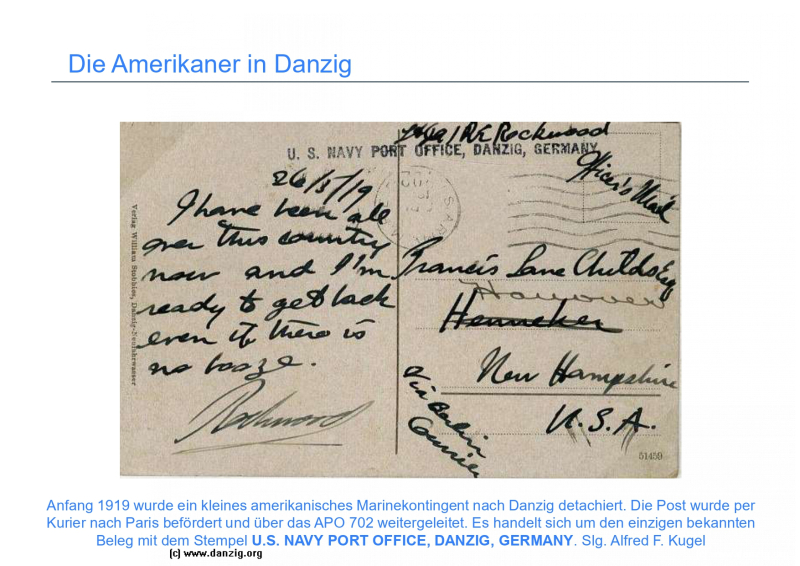 Die Amerikaner in Danzig
R.E. Rockwood
U. S. NAVY PORT OFFICE, DANZIG, GERMANY
Officer's Mail
26/5/19
I have been all
over this country
now and I'm
ready to get back
even if there is
no booze.
Rockwood
Francis Lane Childs Esq
Hanover
Henneker
New Hampshire
U.S.A.
Via Berlin
Courier
Verlag William Danzig-Neufahrwasser
51459
Anfang 1919 wurde ein kleines amerikanisches Marinekontingent nach Danzig detachiert. Die Post wurde per
Kurier nach Paris befördert und über das APO 702 weitergeleitet. Es handelt sich um den einzigen bekannten
Beleg mit dem Stempel U.S. NAVY PORT OFFICE, DANZIG, GERMANY. Slg. Alfred F. Kugel
(c) www.danzig.org